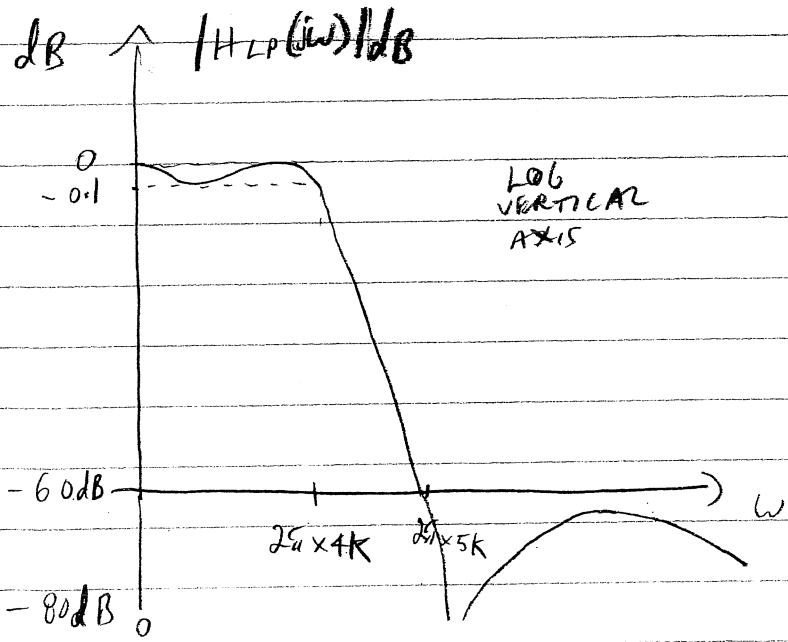 dB |HLP(jω)|dB
0
-0.1
LOG
VERTICAL
AXIS
-60dB
ω
2π×4K 2π×5K
-80dB
0